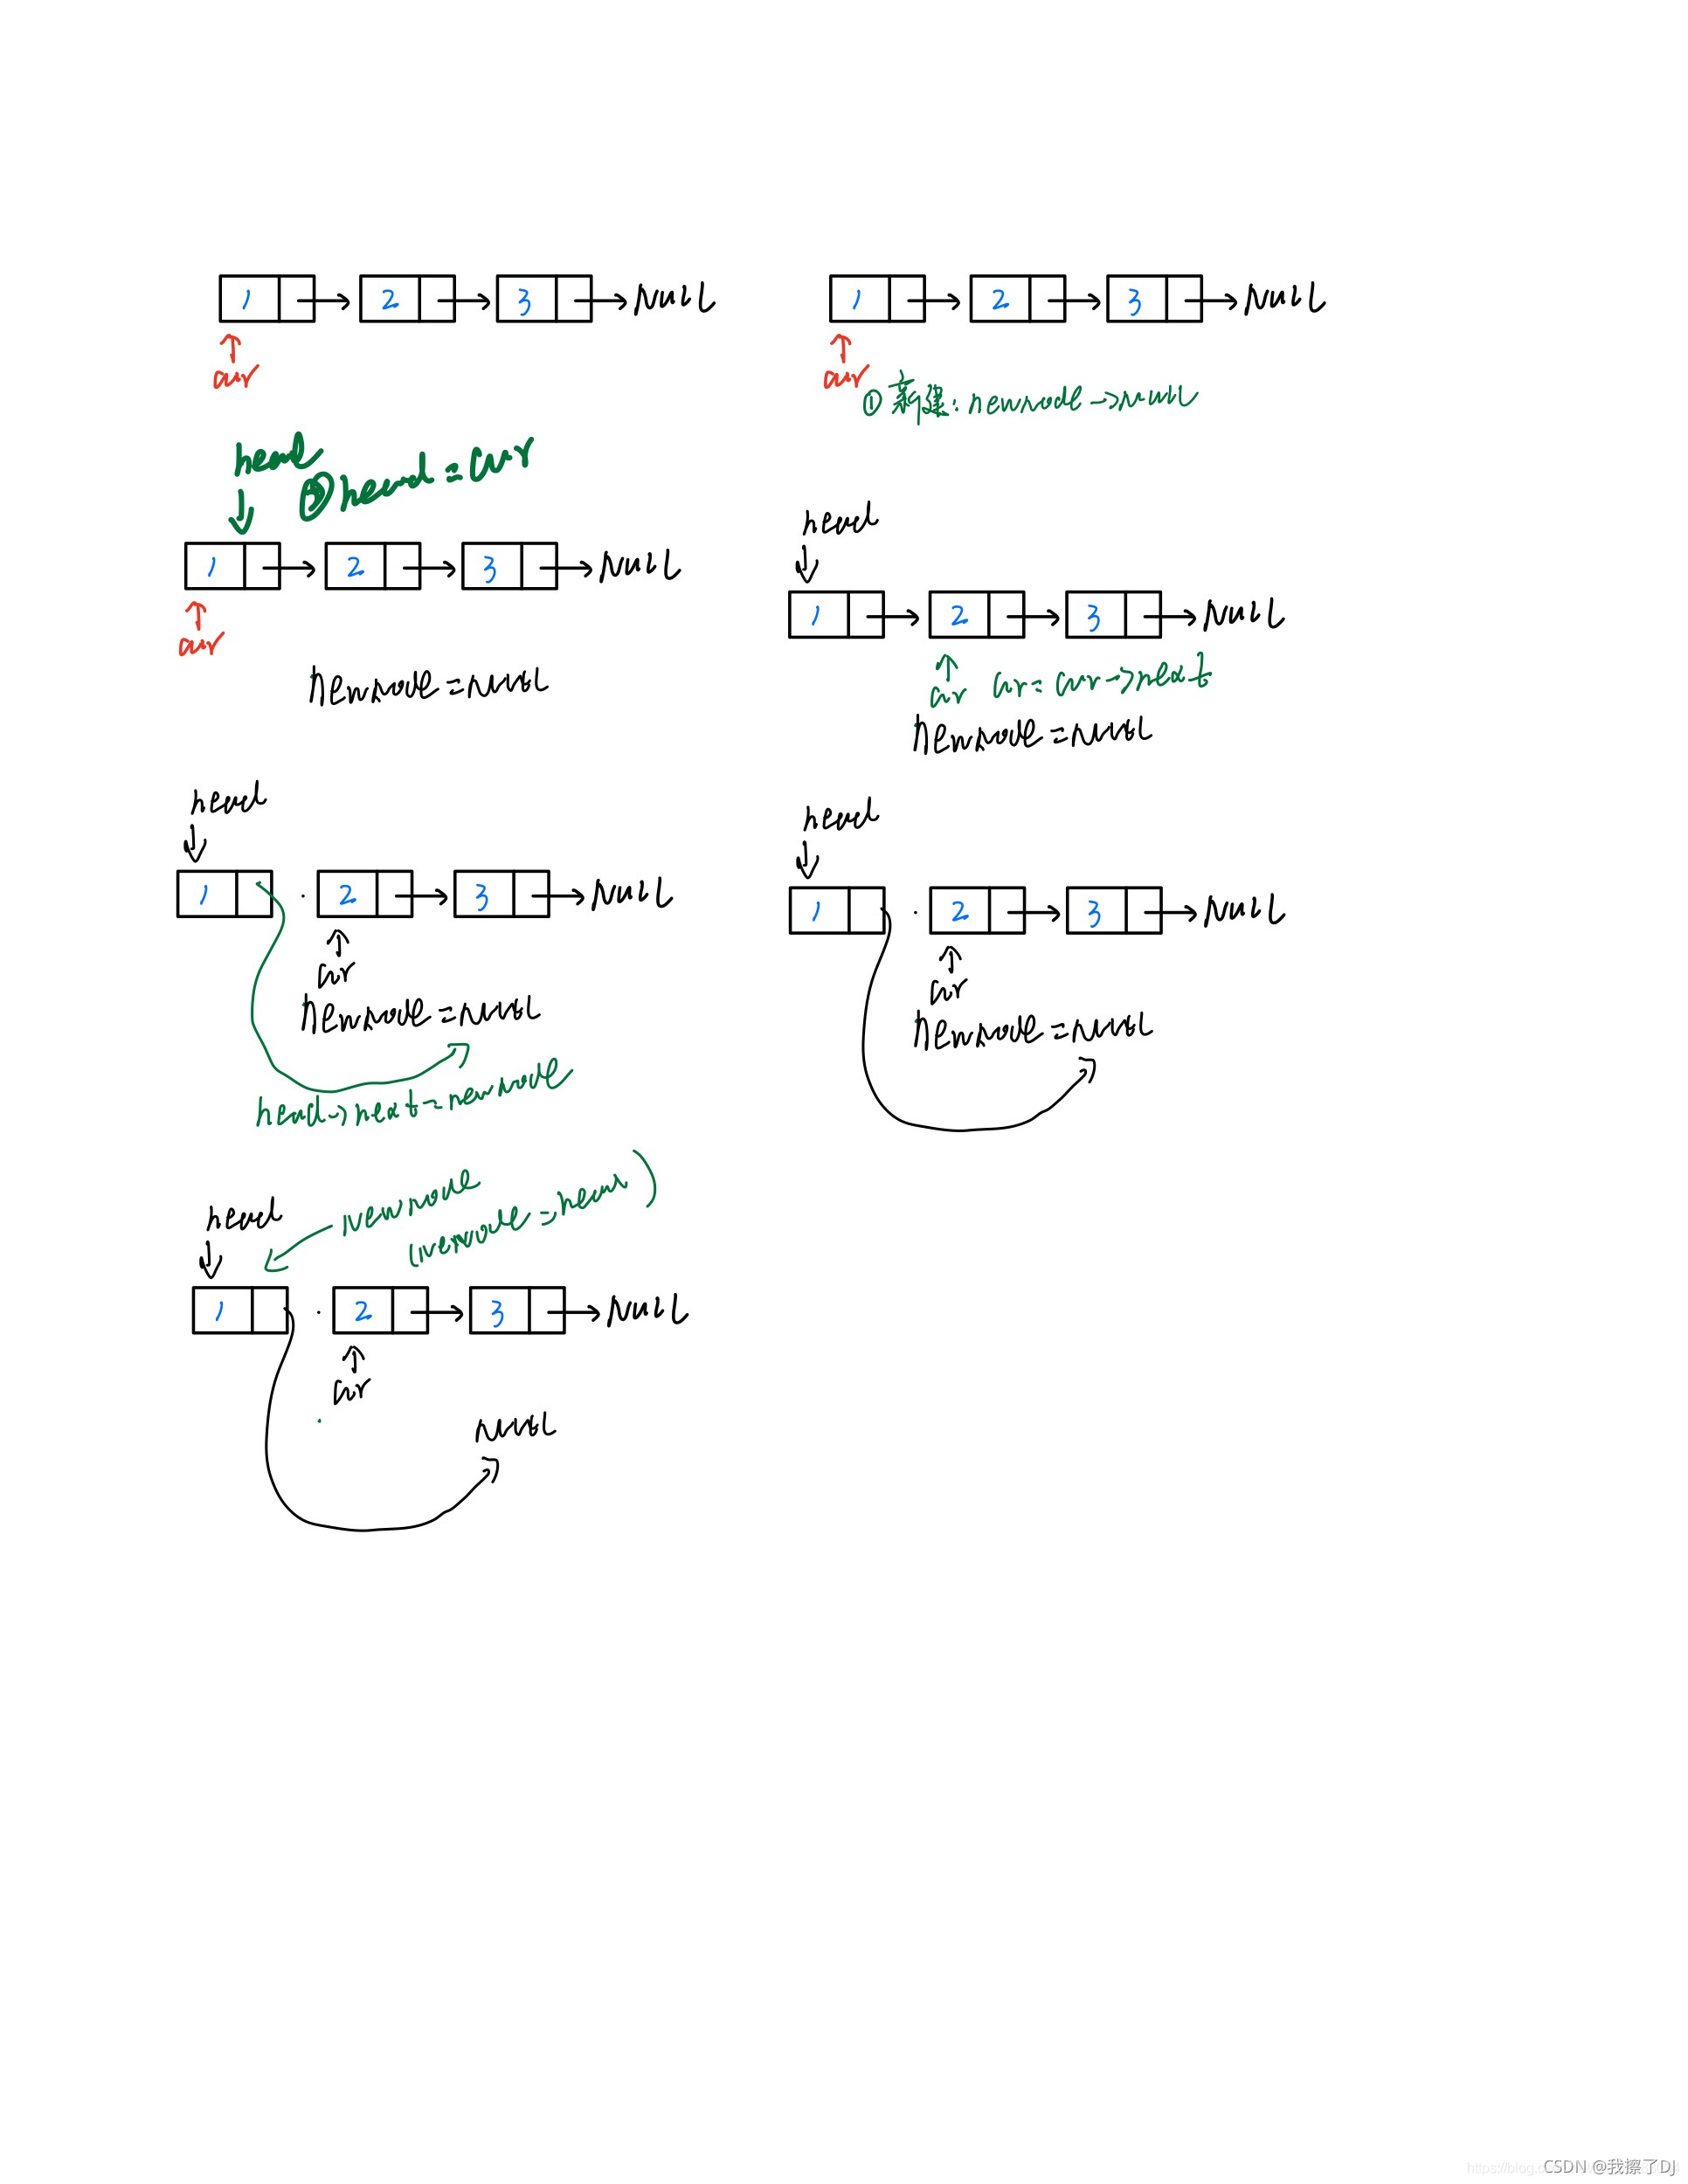 1 2 3 NULL
cur
1 2 3 NULL
cur
①新建:newnode->NULL
head
head=cur
1 2 3 NULL
cur
newnode=NULL
head
1 2 3 NULL
cur cur=cur->next
newnode=NULL
head
1 2 3 NULL
cur
newnode=NULL
head->next=newnode
head
1 2 3 NULL
cur
newnode=NULL
head
newnode
(newnode=head)
1 2 3 NULL
cur
NULL
https://blog.
CSDN @我擦了DJ